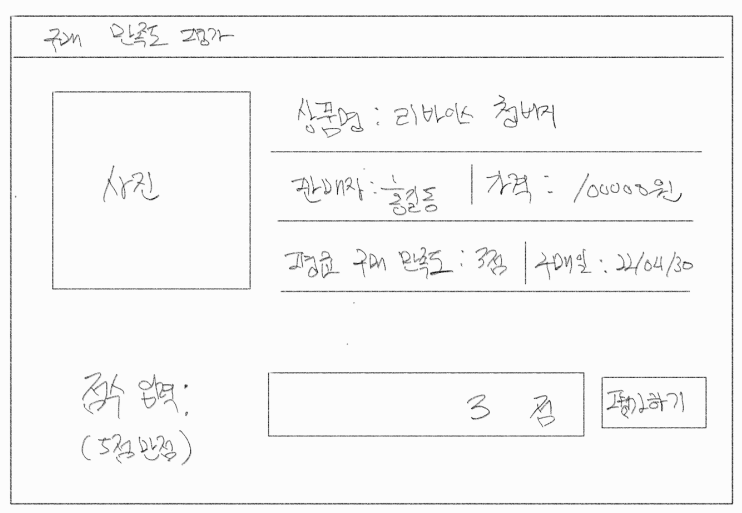 구매 만족도 평가
사진
상품명 : 리바이스 청바지
판매자 : 홍길동 | 가격 : 100000원
평균 구매 만족도 : 3점 | 구매일 : 22/04/30
점수 입력 :
(5점 만점)
3 점
평가하기